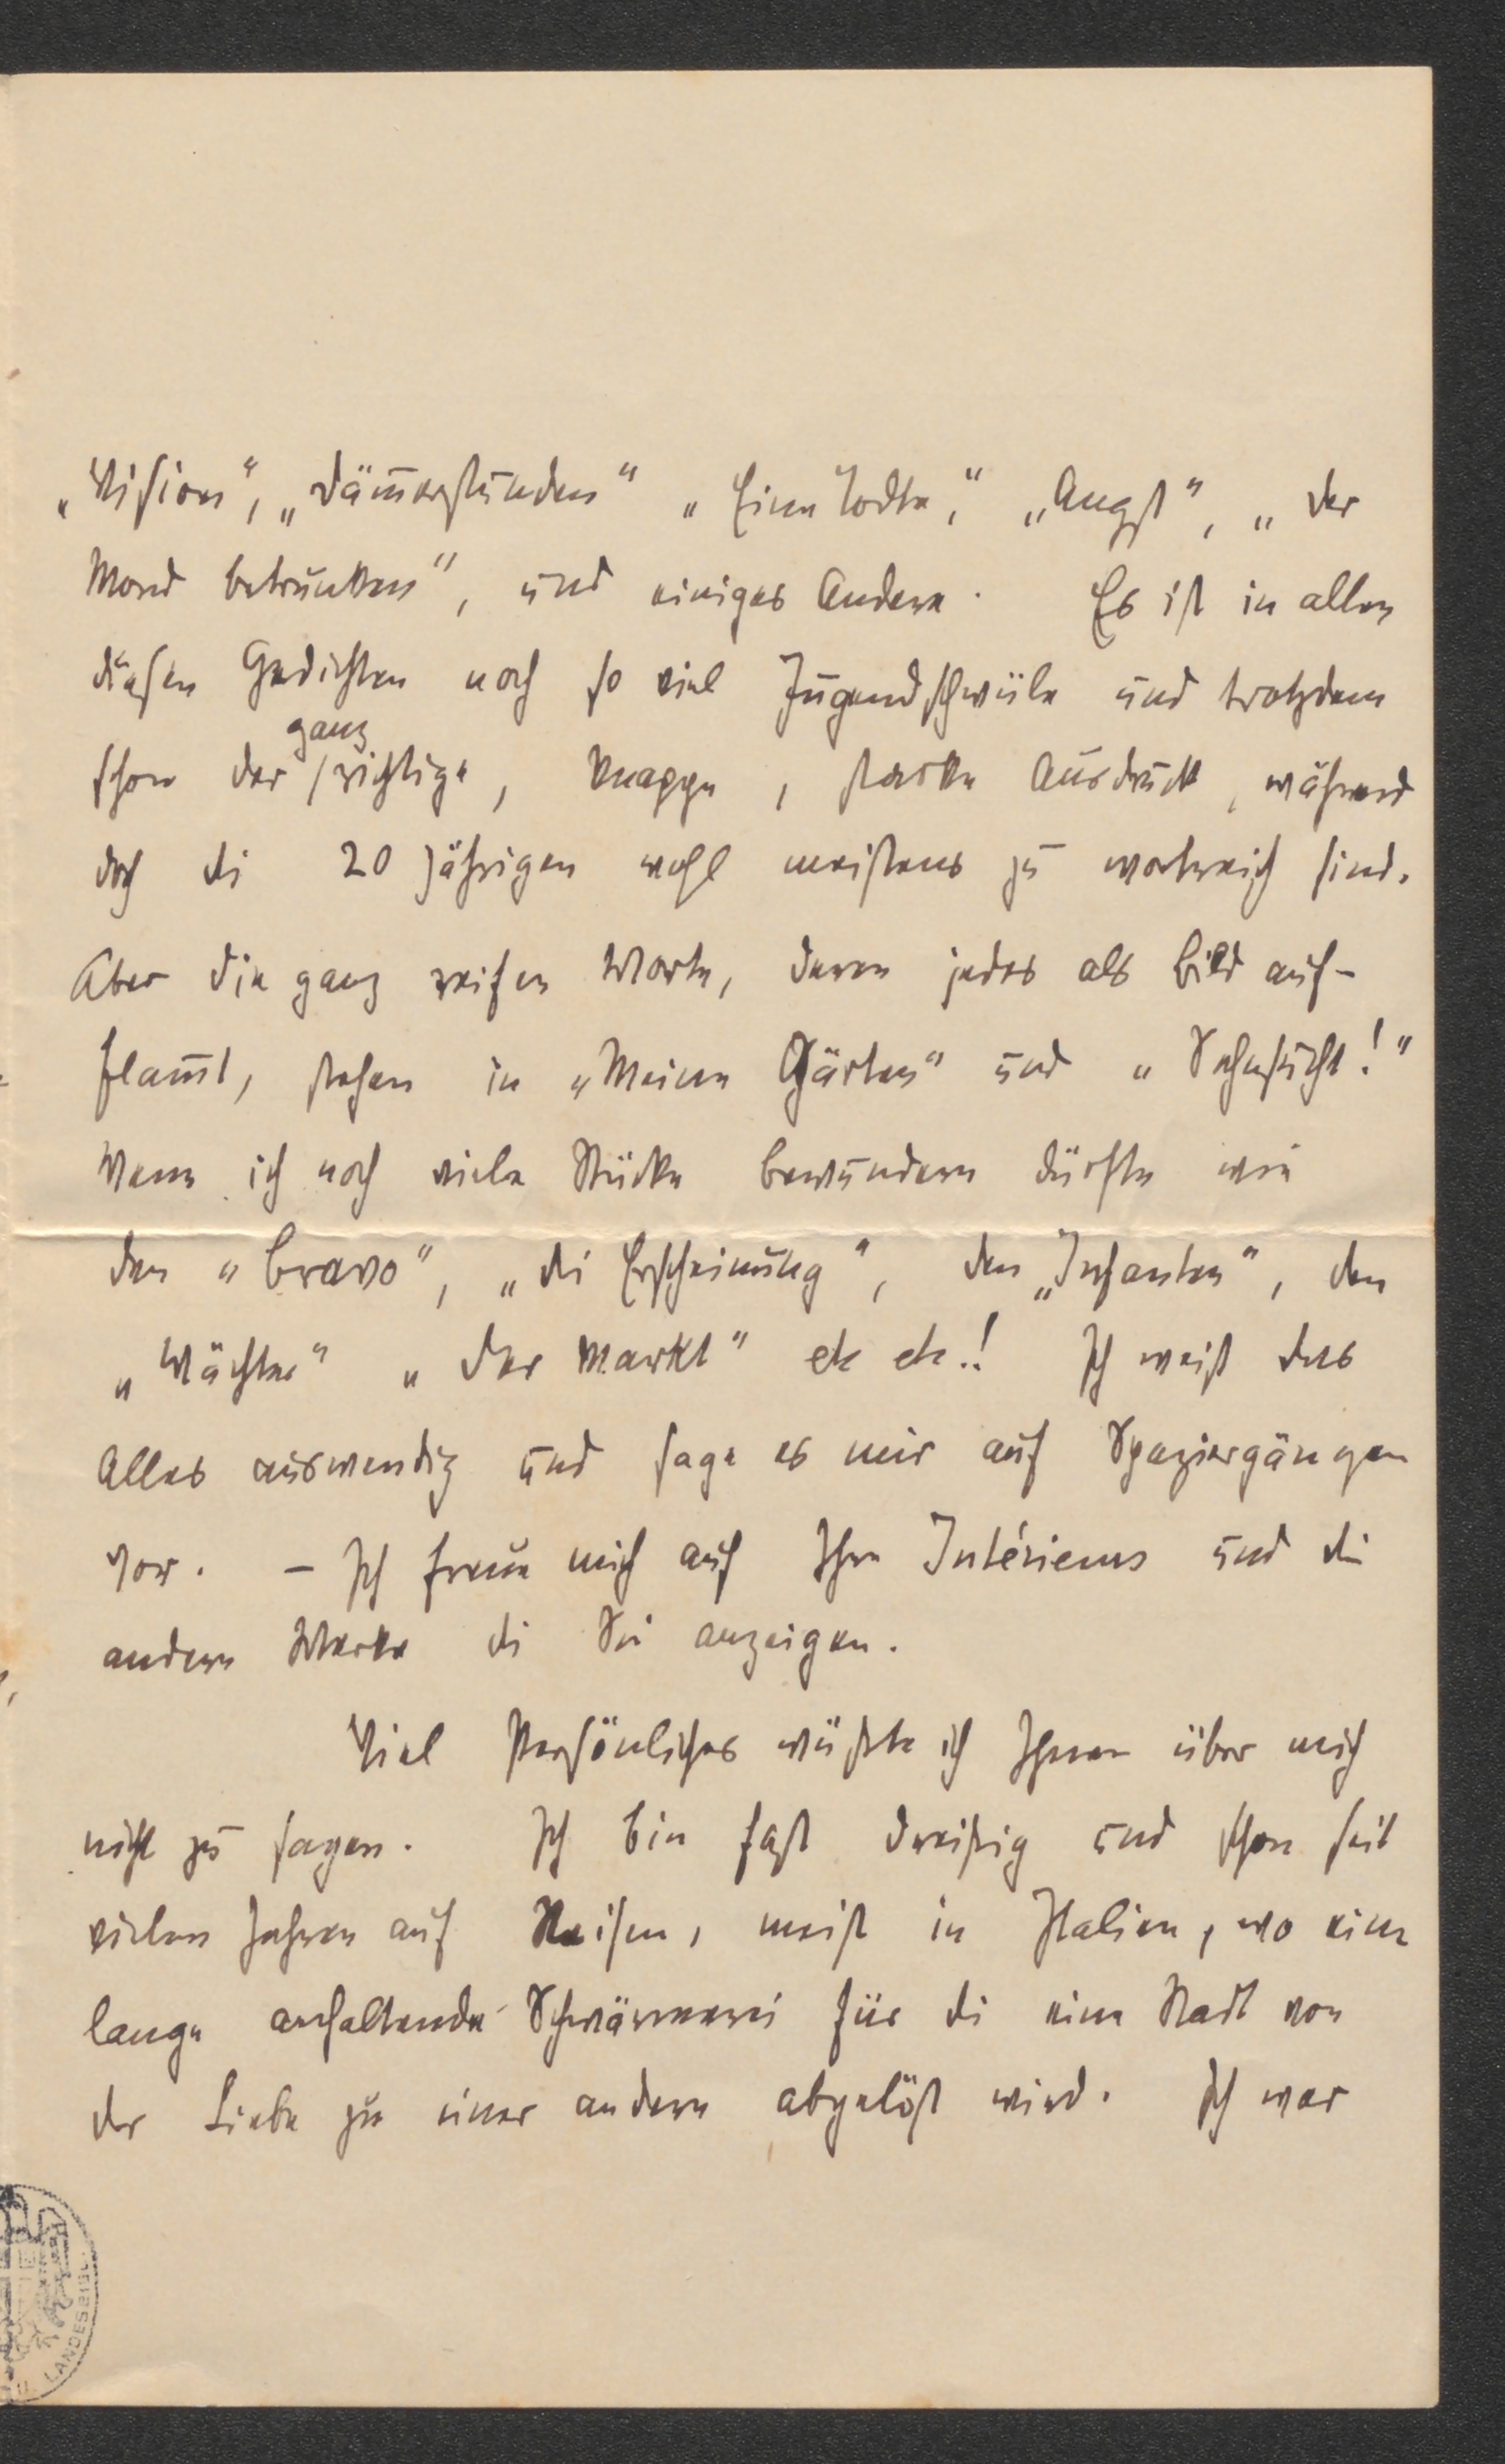 „Vision“, „Däm̅erstunden“ „Eine Todte,“ „Angst“, „der
Mond betrunken“, und einiges Andere. Es ist in allen
diesen Gedichten noch so viel Jugendschwüle und trotzdem
ganz
schon der richtige, knappe, starke Ausdruck, während
doch die 20 jährigen wohl meistens zu wortreich sind.
Aber die ganz reifen Worte, deren jedes als Bild auf-
flam̅t, stehen in „Meinen Gärten“ und „Sehnsucht!“
Wenn ich noch viele Stücke bewundern dürfte wie
den „Bravo“, „die Erscheinung“, den „Infanten“, den
„Wächter“ „der Markt“ etc etc.! Ich weiß das
Alles auswendig und sage es mir auf Spaziergängen
vor. – Ich freue mich auf Ihre Intérieurs und die
andern Werke die Sie anzeigen.
Viel Persönliches wüßte ich Ihnen über mich
nicht zu sagen. Ich bin fast dreißig und schon seit
vielen Jahren auf Reisen, meist in Italien, wo eine
lange anhaltende Schwärmerei für die eine Stadt von
der Liebe zu einer andern abgelöst wird. Ich war
LANDESBIBL